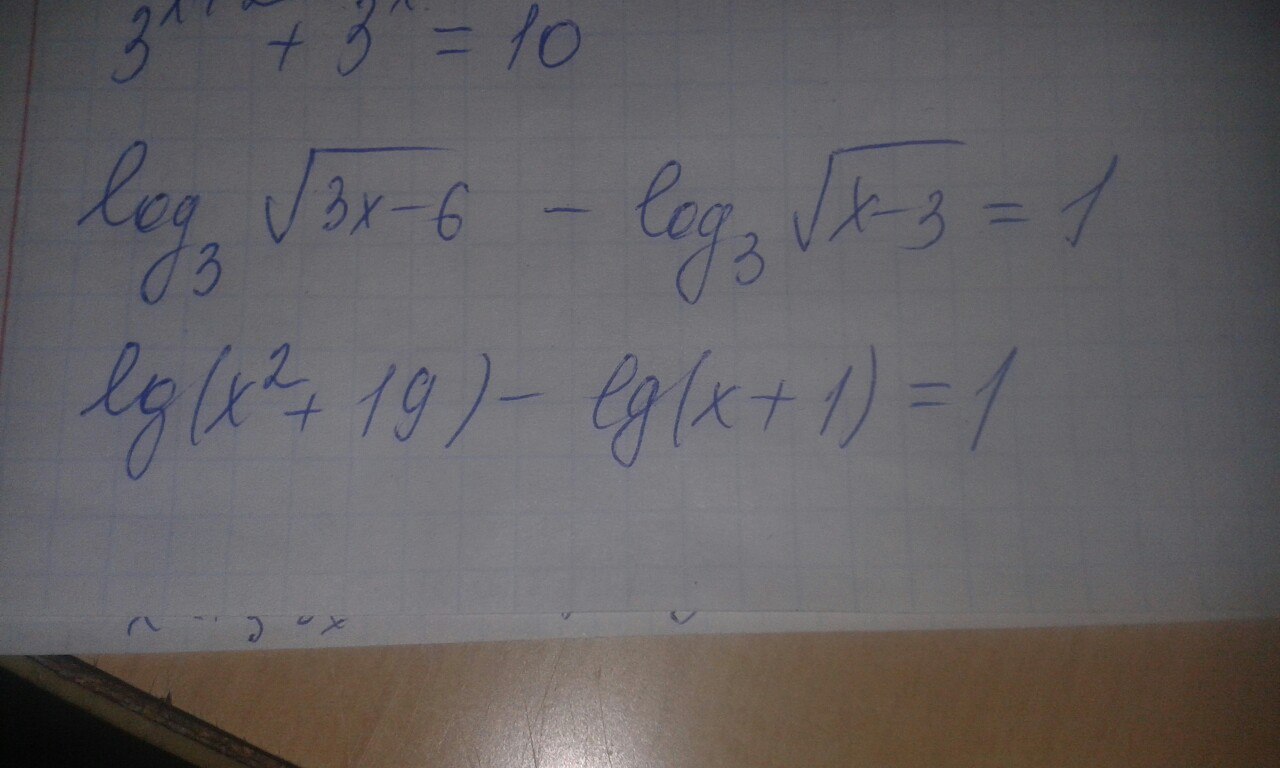 3^{x+2} + 3^x = 10
log_3 √(3x-6) - log_3 √(x-3) = 1
lg(x^2 + 19) - lg(x + 1) = 1